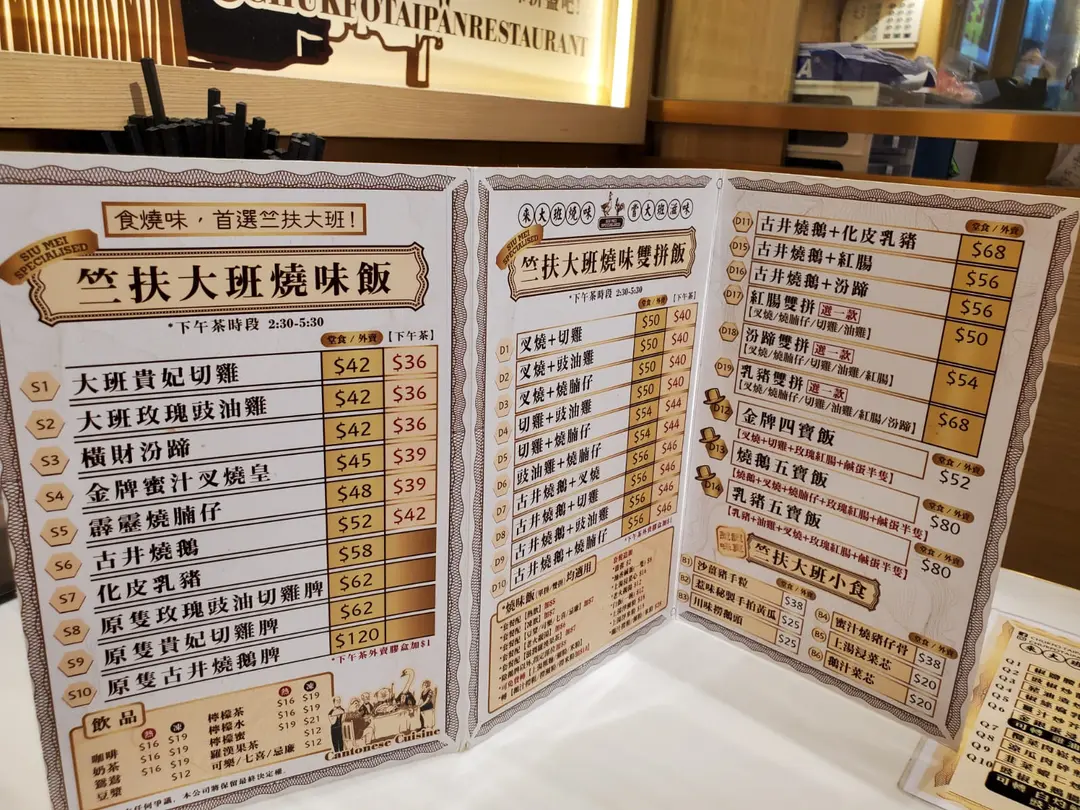 TAIPANRESTAURANT
食燒味，首選竺扶大班！
SIU MEI SPECIALISED
竺扶大班燒味飯
*下午茶時段 2:30-5:30
堂食 / 外賣 【下午茶】
S1 大班貴妃切雞 $42 $36
S2 大班玫瑰豉油雞 $42 $36
S3 橫財汾蹄 $42 $36
S4 金牌蜜汁叉燒皇 $45 $39
S5 霹靂燒腩仔 $48 $39
S6 古井燒鵝 $52 $42
S7 化皮乳豬 $58
S8 原隻玫瑰豉油切雞脾 $62
S9 原隻貴妃切雞脾 $62
S10 原隻古井燒鵝脾 $120
*下午茶外賣膠盒加$1
飲品
熱 凍
咖啡 $16 $19
奶茶 $16 $19
鴛鴦 $16 $19
豆漿 $12
熱 凍
檸檬茶 $16 $19
檸檬水 $16 $19
檸檬蜜 $19 $21
羅漢果茶 $12
可樂/七喜/忌廉 $12
Cantonese Cuisine
任何爭議，本公司將保留最終決定權。
來大班燒味 嘗大班滋味
SIU MEI SPECIALISED
竺扶大班燒味雙拼飯
*下午茶時段 2:30-5:30
堂食 / 外賣 【下午茶】
D1 叉燒+切雞 $50 $40
D2 叉燒+豉油雞 $50 $40
D3 叉燒+燒腩仔 $50 $40
D4 切雞+豉油雞 $50 $40
D5 切雞+燒腩仔 $54 $44
D6 豉油雞+燒腩仔 $54 $44
D7 古井燒鵝+叉燒 $56 $46
D8 古井燒鵝+切雞 $56 $46
D9 古井燒鵝+豉油雞 $56 $46
D10 古井燒鵝+燒腩仔 $56 $46
*下午茶外賣膠盒加$1
*燒味飯(單拼/雙拼)均適用
D11 古井燒鵝+化皮乳豬 $68
堂食 / 外賣
D15 古井燒鵝+紅腸 $56
D16 古井燒鵝+汾蹄 $56
D17 紅腸雙拼 選一款 $50
[叉燒/燒腩仔/切雞/油雞]
D18 汾蹄雙拼 選一款 $54
[叉燒/燒腩仔/切雞/油雞/紅腸]
D19 乳豬雙拼 選一款 $68
[叉燒/燒腩仔/切雞/油雞/紅腸/汾蹄]
D12 金牌四寶飯 堂食 / 外賣 $52
[叉燒+切雞+玫瑰紅腸+鹹蛋半隻]
D13 燒鵝五寶飯 堂食 / 外賣 $80
[燒鵝+叉燒+燒腩仔+玫瑰紅腸+鹹蛋半隻]
D14 乳豬五寶飯 堂食 / 外賣 $80
[乳豬+油雞+叉燒+玫瑰紅腸+鹹蛋半隻]
竺扶大班小食
堂食 / 外賣
B1 沙薑豬手粒 $38
B2 惹味秘製手拍黃瓜 $25
B3 川味撈鵝頭 $25
堂食 / 外賣
B4 蜜汁燒豬仔骨 $38
B5 上湯浸菜芯 $20
B6 鵝汁菜芯 $20
Q1
Q2
Q7
Q8
Q9
Q10